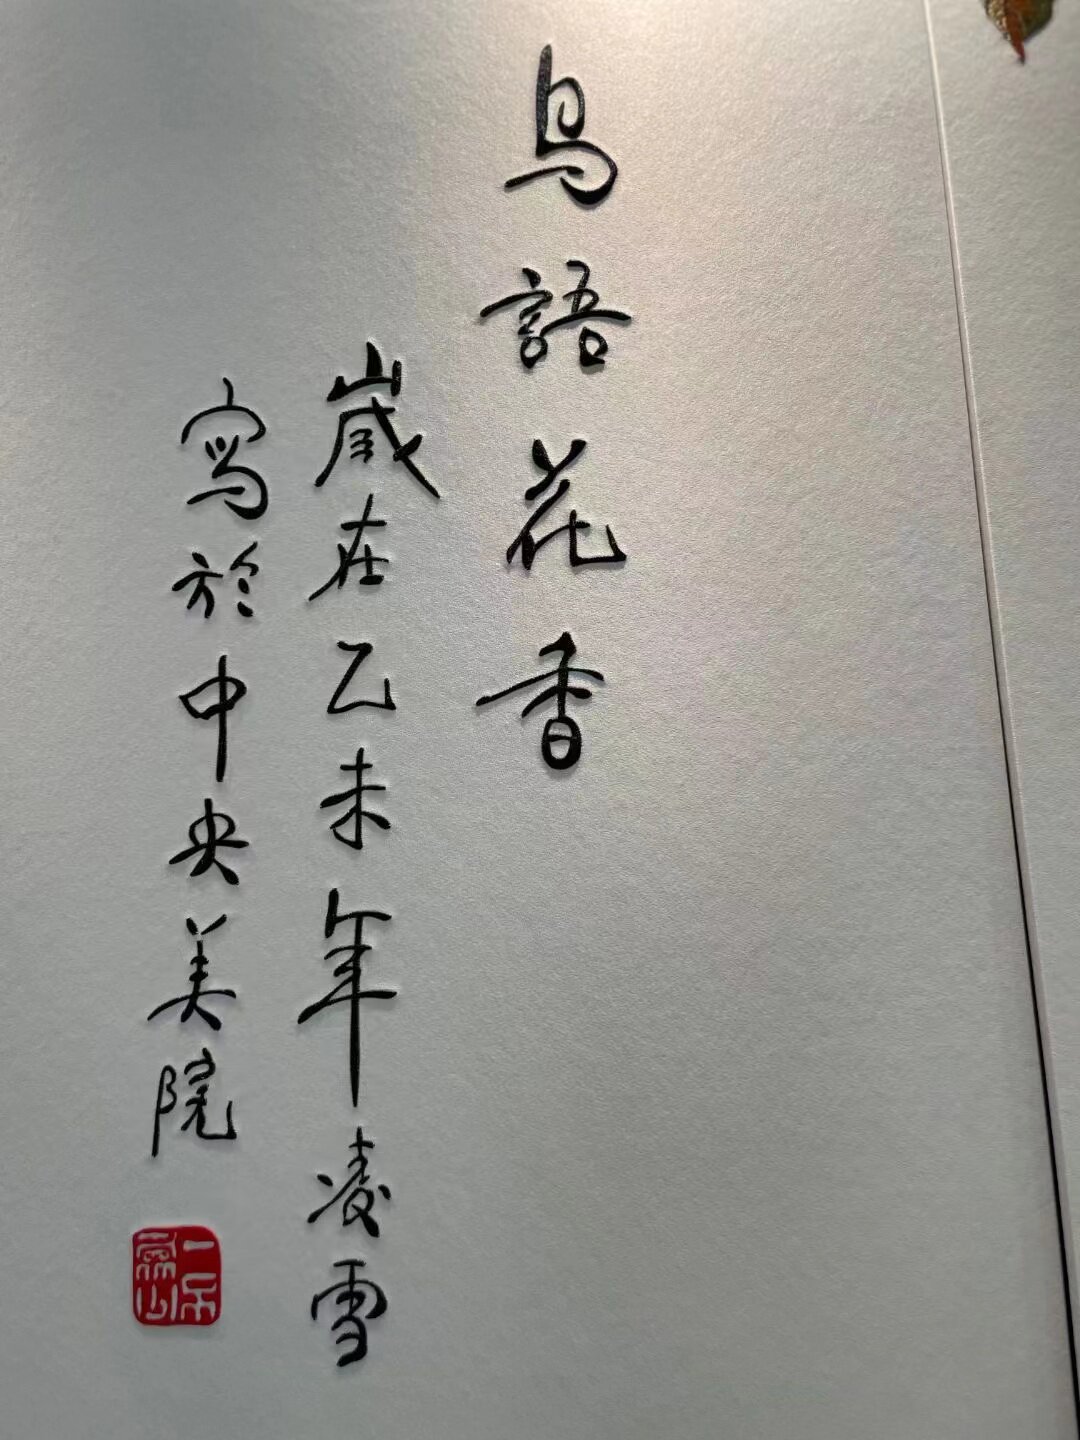 鳥語花香
歲在乙未年凌雪
寫於中央美院